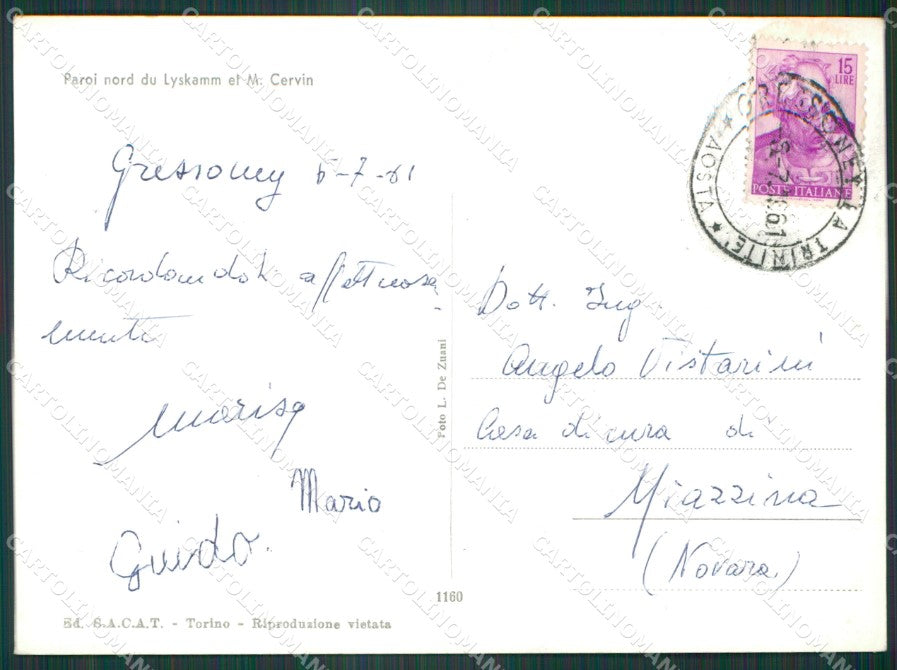 Paroi nord du Lyskamm et M. Cervin
15
LIRE
POSTE ITALIANE
GRESSONEY LA TRINITE'
★ AOSTA ★
-7.1961
Gressoney 6-7-61
Ricordandoti affettuosa-
mente
Marisa
Mario
Guido.
Foto L. De Zuani
Dott. Ing.
Angelo Vistarini
Casa di cura di
Miazzina
(Novara)
1160
Ed. S.A.C.A.T. - Torino - Riproduzione vietata
CARTOLINOMANIA